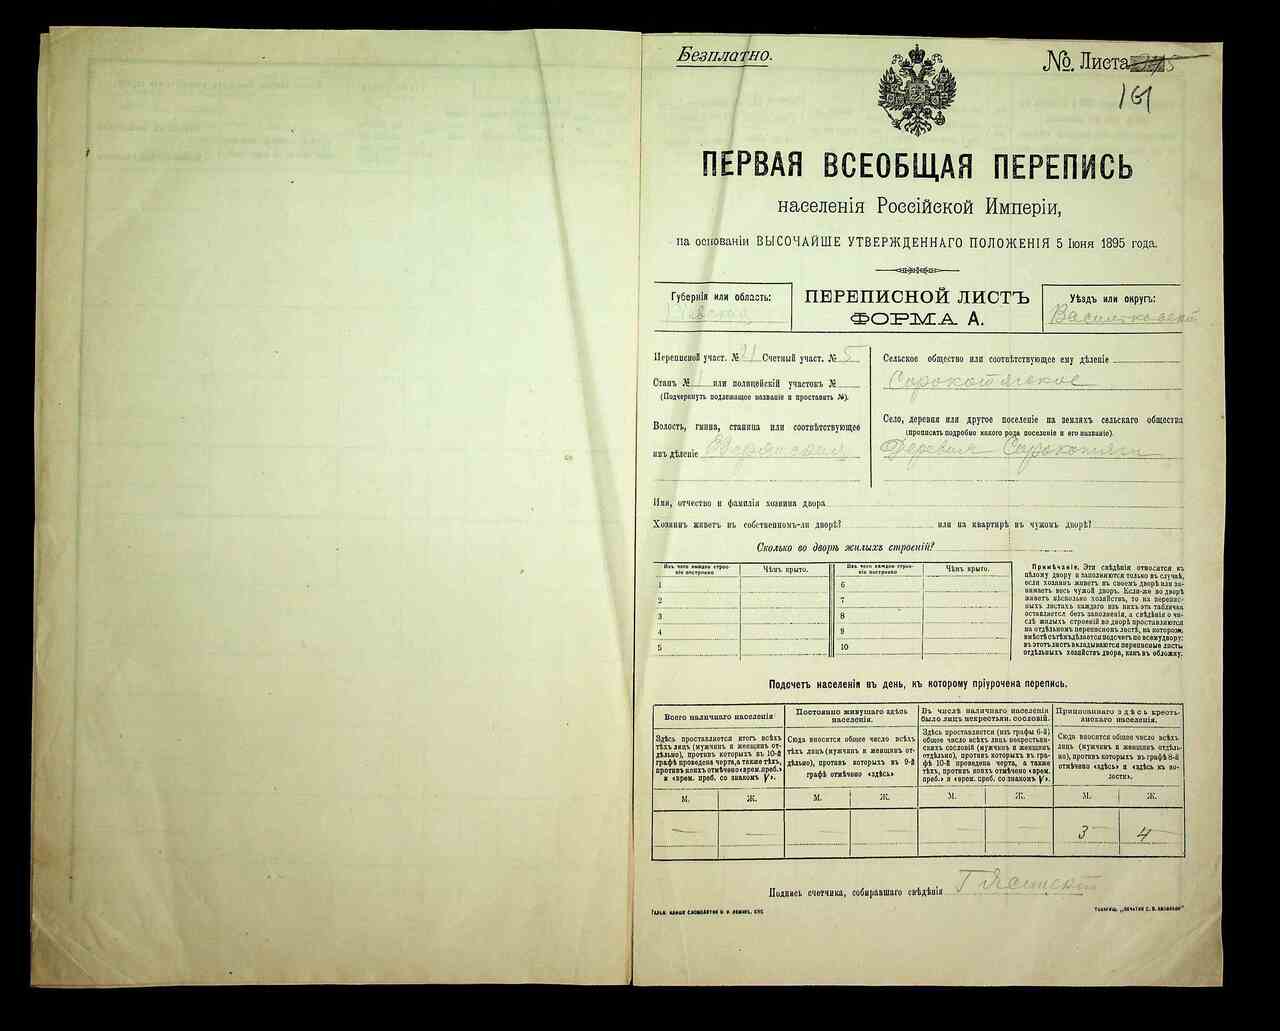 Безплатно.
№. Листа
161
ПЕРВАЯ ВСЕОБЩАЯ ПЕРЕПИСЬ
населенія Россійской Имперіи,
на основаніи ВЫСОЧАЙШЕ УТВЕРЖДЕННАГО ПОЛОЖЕНІЯ 5 Іюня 1895 года.
Губернія или область:
ПЕРЕПИСНОЙ ЛИСТЪ
ФОРМА А.
Уѣздъ или округъ:
Васильковскій
Переписной участ. № 21 Счетный участ. № 5
Станъ № 1 или полицейскій участокъ №
(Подчеркнуть подлежащее названіе и проставить №).
Волость, гмина, станица или соотвѣтствующее
имъ дѣленіе
Сельское общество или соотвѣтствующее ему дѣленіе
Сорокотягское
Село, деревня или другое поселеніе на земляхъ сельскаго общества
(прописать подробно какого рода поселеніе и его названіе).
Деревня Сорокотяги
Имя, отчество и фамилія хозяина двора
Хозяинъ живетъ въ собственномъ-ли дворѣ? или на квартирѣ въ чужомъ дворѣ?
Сколько во дворѣ жилыхъ строеній?
Изъ чего каждое строеніе построено
Чѣмъ крыто.
Изъ чего каждое строеніе построено
Чѣмъ крыто.
1
2
3
4
5
6
7
8
9
10
Примѣчаніе. Эти свѣдѣнія относятся къ
цѣлому двору и заполняются только въ случаѣ,
если хозяинъ живетъ въ своемъ дворѣ или за-
нимаетъ весь чужой дворъ. Если-же во дворѣ
живетъ нѣсколько хозяйствъ, то на перепис-
ныхъ листахъ каждаго изъ нихъ эта табличка
оставляется безъ заполненія, а свѣдѣнія о чи-
слѣ жилыхъ строеній во дворѣ проставляются
на отдѣльномъ переписномъ листѣ, на которомъ
вмѣстѣ съ тѣмъ дѣлается подсчетъ по всему двору:
въ этотъ листъ вкладываются переписные листы
отдѣльныхъ хозяйствъ двора, какъ въ обложку.
Подсчетъ населенія въ день, къ которому пріурочена перепись.
Всего наличнаго населенія
Здѣсь проставляется итогъ всѣхъ
тѣхъ лицъ (мужчинъ и женщинъ от-
дѣльно), противъ которыхъ въ 10-й
графѣ проведена черта, а также тѣхъ,
противъ коихъ отмѣчено «врем. преб.»
и «врем. преб. со знакомъ V».
Постоянно живущаго здѣсь
населенія.
Сюда вносится общее число всѣхъ
тѣхъ лицъ (мужчинъ и женщинъ от-
дѣльно), противъ которыхъ въ 9-й
графѣ отмѣчено «здѣсь»
Въ числѣ наличнаго населенія
было лицъ некрестьян. сословій.
Здѣсь проставляется (изъ графы 6-й)
общее число всѣхъ лицъ некрестьян-
скихъ сословій (мужчинъ и женщинъ
отдѣльно), противъ которыхъ въ гра-
фѣ 10-й проведена черта, а также
тѣхъ, противъ коихъ отмѣчено «врем.
преб.» и «врем. преб. со знакомъ V».
Приписаннаго здѣсь кресть-
янскаго населенія.
Сюда вносится общее число всѣхъ
лицъ (мужчинъ и женщинъ отдѣль-
но), противъ которыхъ въ графѣ 8-й
отмѣчено «здѣсь» и «здѣсь въ во-
лости».
М. Ж. М. Ж. М. Ж. М. Ж.
— — — — — — 3 4
Подпись счетчика, собиравшаго свѣдѣнія